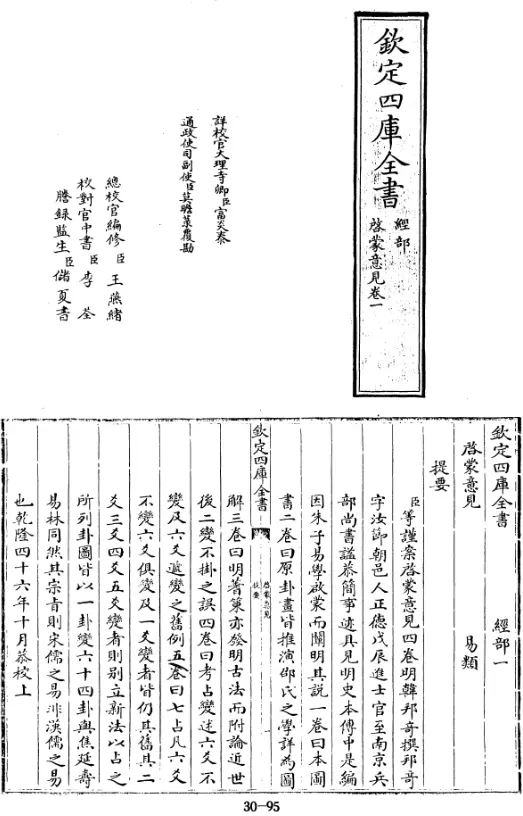 欽定四庫全書
經部
啓蒙意見卷一
詳校官大理寺卿臣富炎泰
通政使司副使臣莫瞻菉覆勘
總校官編修臣王燕緒
校對官中書臣李荃
謄録監生臣儲夏書
欽定四庫全書 經部一
啓蒙意見 易類
提要
臣等謹案啓蒙意見四卷明韓邦奇撰邦奇
字汝節朝邑人正德戊辰進士官至南京兵
部尚書諡恭簡事迹具見明史本傳中是編
因朱子易學啟蒙而闡明其説一卷曰本圖
書二卷曰原卦畫皆推演邵氏之學詳為圖
欽定四庫全書
啓蒙意見
提要
解三卷曰明蓍策亦發明古法而附論近世
後二變不掛之誤四卷曰考占變述六爻不
變及六爻遞變之舊例五卷曰七占凡六爻
不變六爻俱變及一爻變者皆仍其舊其二
爻三爻四爻五爻變者則别立新法以占之
所列卦圖皆以一卦變六十四卦與焦延壽
易林同然其宗旨則宋儒之易非漢儒之易
也乾隆四十六年十月恭校上
30-95